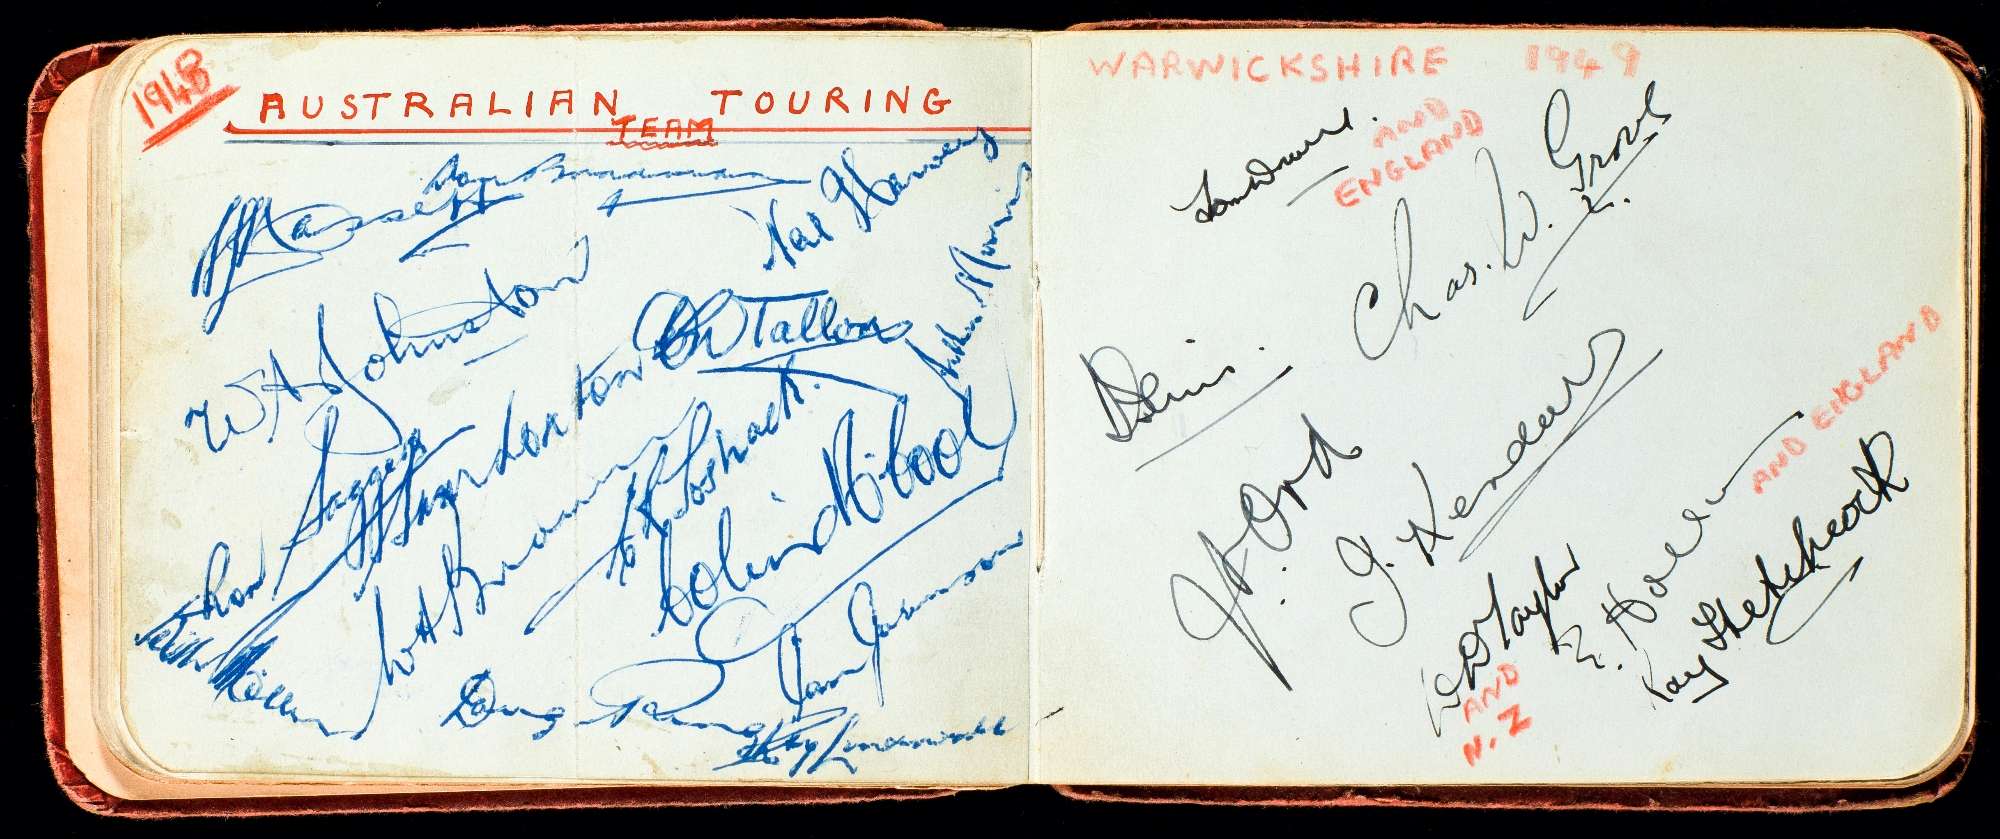 1948
AUSTRALIAN TOURING
TEAM
Don Bradman
A L Hassett
Neil Harvey
Arthur Morris
W A Johnston
D Tallon
Ron Saggers
S J E Loxton
E R H Toshack.
Colin McCool
Keith Miller
W A Brown
Doug Ring
Ian Johnson
Ray Lindwall
WARWICKSHIRE 1949
AND
ENGLAND
Tom Dollery.
Chas. W. Grove
J. S. Ord
AND ENGLAND
E. Hollies
Ray Hitchcock
W D Taylor
AND
N.Z